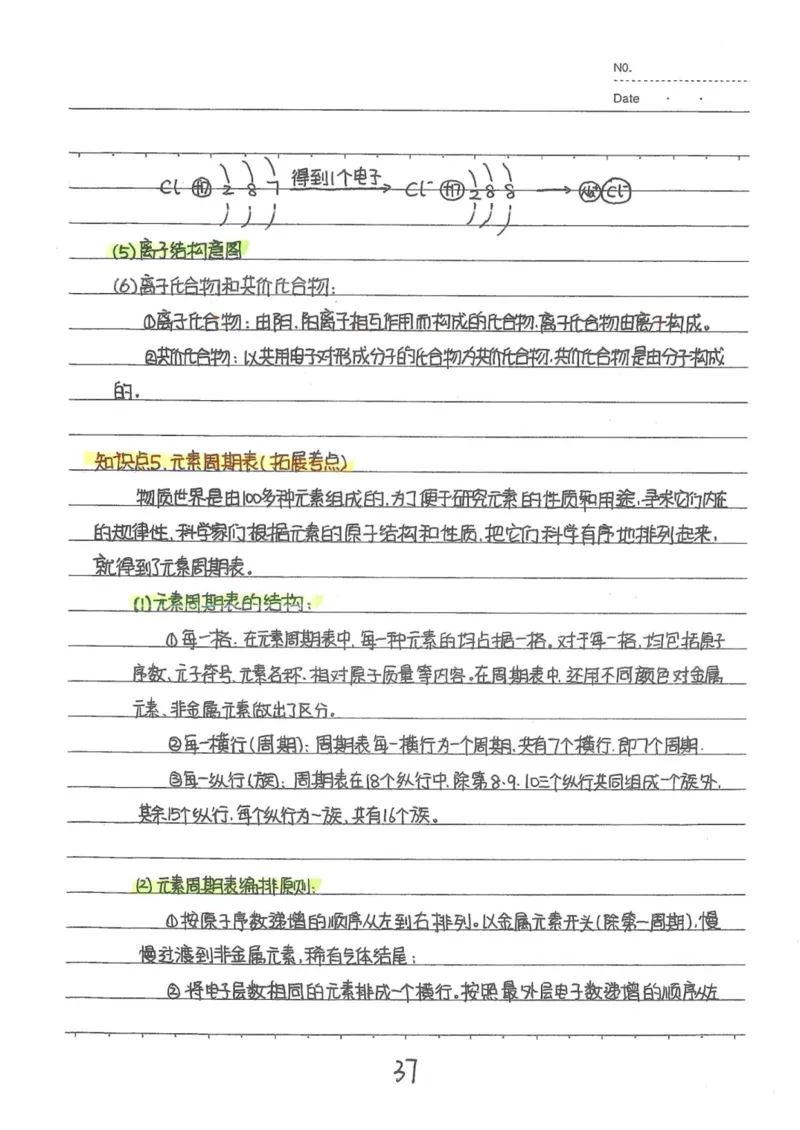 N0.
Date
Cl +17 2 8 7 得到1个电子 Cl⁻ +17 2 8 8 Na⁺ Cl⁻
(5)离子结构意图
(6)离子化合物和共价化合物:
①离子化合物:由阴、阳离子相互作用而构成的化合物.离子化合物由离子构成。
②共价化合物:以共用电子对形成分子的化合物为共价化合物.共价化合物是由分子构成
的.
知识点5.元素周期表(拓展考点)
物质世界是由100多种元素组成的,为了便于研究元素的性质和用途,寻求它们内在
的规律性,科学家们根据元素的原子结构和性质,把它们科学有序地排列起来,
就得到了元素周期表。
(1)元素周期表的结构:
①每一格:在元素周期表中,每一种元素的均占据一格。对于每一格,均包括原子
序数、元子符号、元素名称、相对原子质量等内容。在周期表中,还用不同颜色对金属
元素、非金属元素做出了区分.
②每一横行(周期):周期表每一横行为一个周期.共有7个横行.即7个周期.
③每一纵行(族):周期表在18个纵行中,除第8、9、10三个纵行共同组成一个族外,
其余15个纵行,每个纵行为一族、共有16个族。
(2)元素周期表编排原则:
①按原子序数递增的顺序从左到右排列。以金属元素开头(除第一周期),慢
慢过渡到非金属元素,稀有气体结尾;
②将电子层数相同的元素排成一个横行。按照最外层电子数递增的顺序从左
37